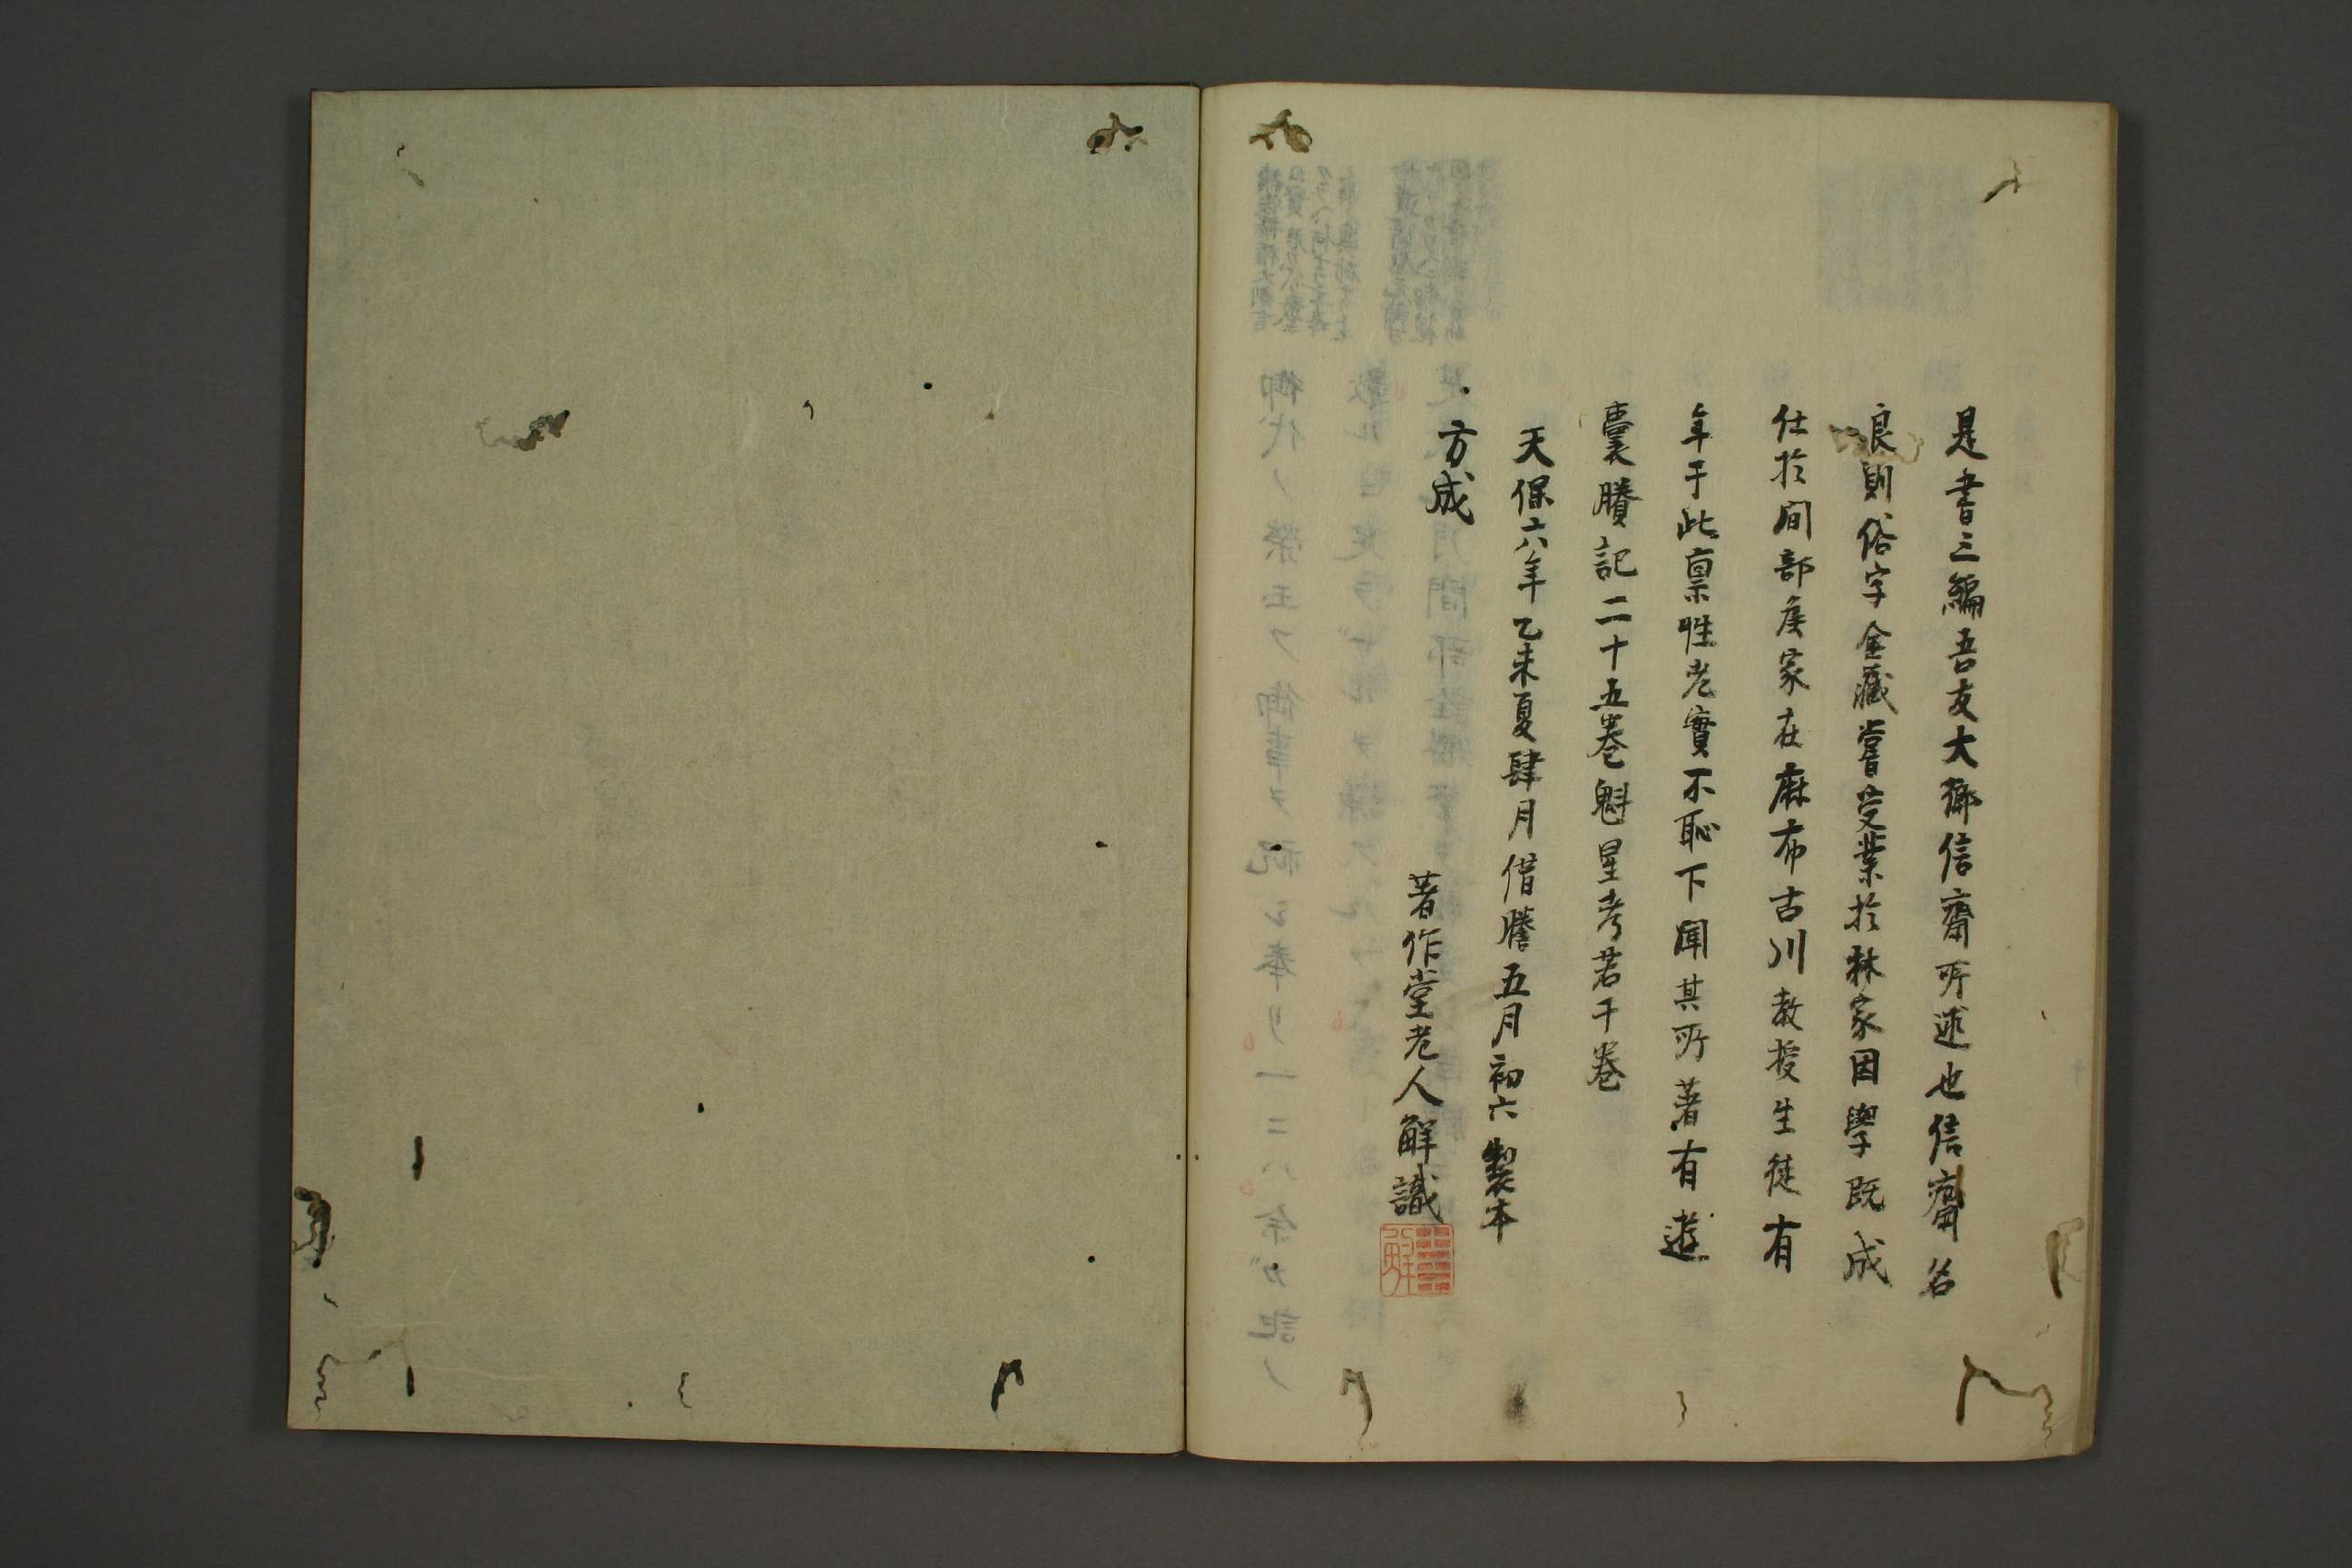 是書三編吾友大鄉信齋所述也信齋名
良則俗字金藏嘗受業於林家因學既成
仕於間部矦家在麻布古川教授生徒有
年于此稟性老實不恥下聞其所著有遊
囊賸記二十五卷魁星考若干卷
天保六年乙未夏肆月借謄五月初六製本
方成
著作堂老人解識
解